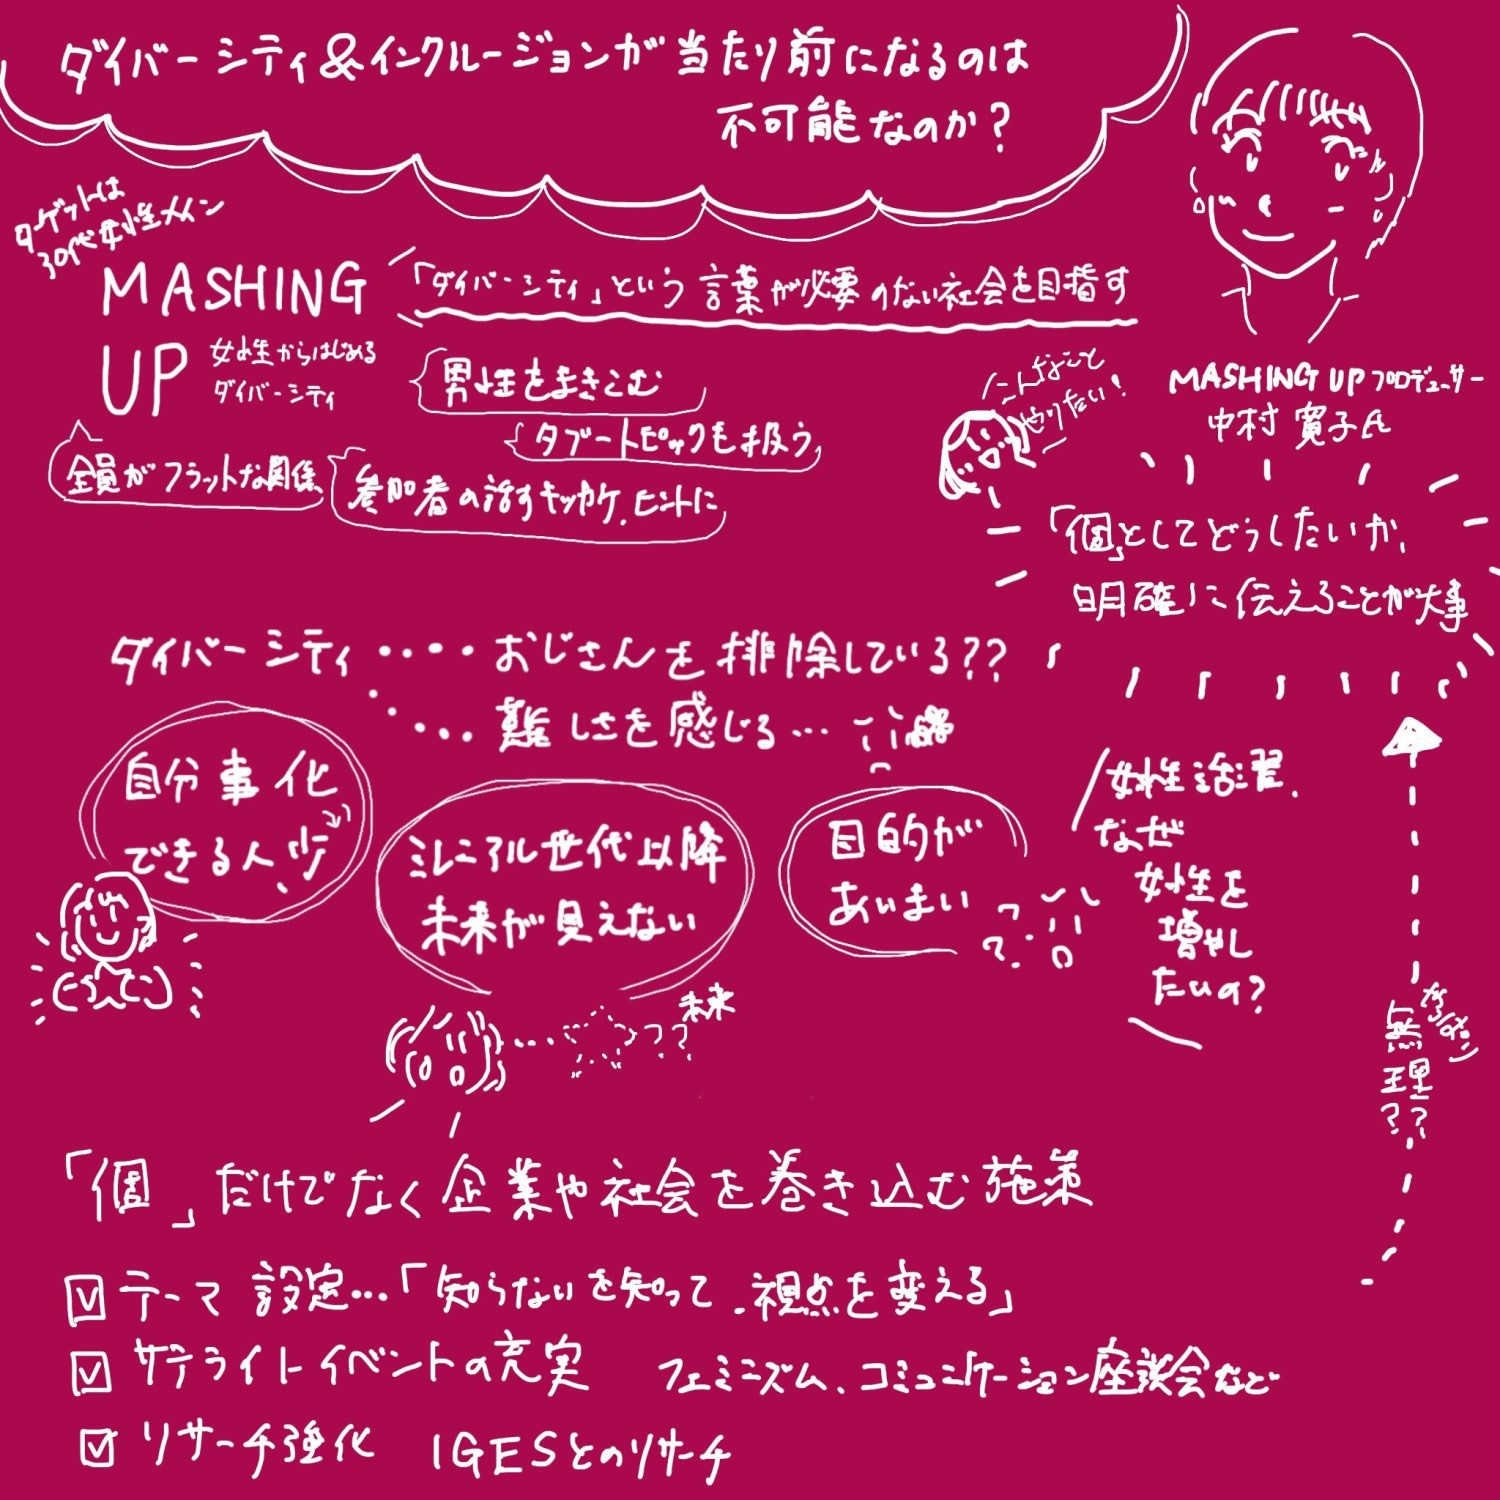 ダイバーシティ&インクルージョンが当たり前になるのは
不可能なのか?
ターゲットは
30代女性メイン
MASHING
UP
女性からはじめる
ダイバーシティ
「ダイバーシティ」という言葉が必要のない社会を目指す
男性をまきこむ
タブートピックも扱う
全員がフラットな関係
参加者の話すキッカケ、ヒントに
MASHING UPプロデューサー
中村 寛子氏
こんなこと
やりたい!
「個」としてどうしたいか、
明確に伝えることが大事
ダイバーシティ・・・・おじさんを排除している??
・・・・難しさを感じる…
自分事化
できる人、少
ミレニアル世代以降
未来が見えない
未来
??
目的が
あいまい
??
女性活躍、
なぜ
女性を
増やし
たいの?
無理??
「個」だけでなく企業や社会を巻き込む施策
テーマ設定…「知らないを知って、視点を変える」
サテライトイベントの充実 フェミニズム、コミュニケーション座談会など
リサーチ強化 IGESとのリサーチ